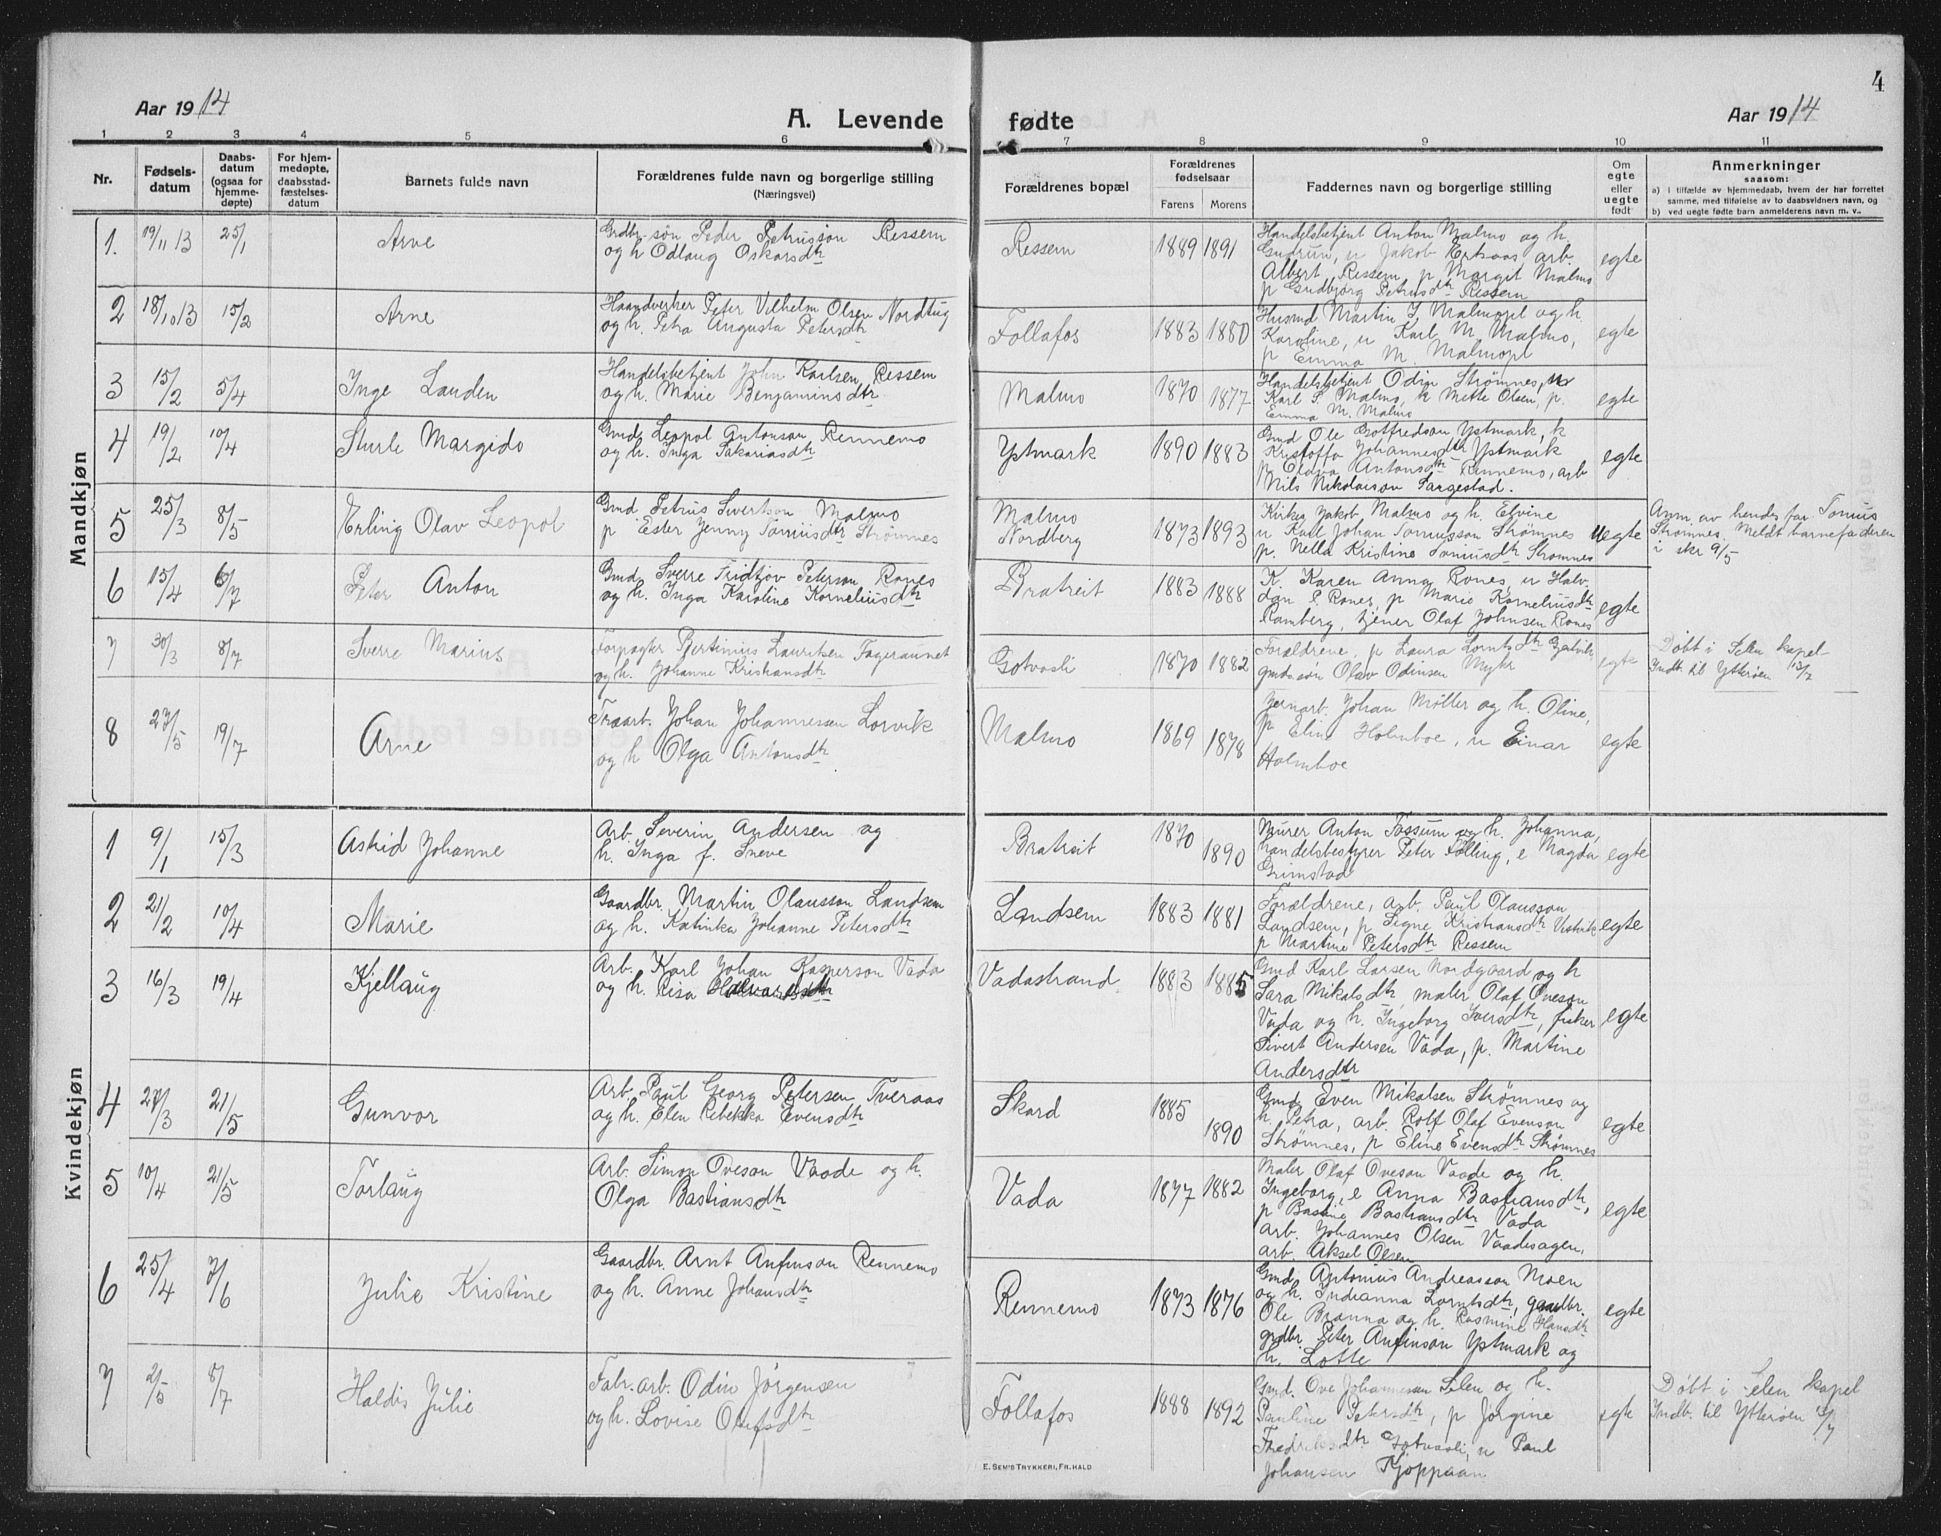 4
Aar 1914
A. Levende fødte
Aar 1914
1 2 3 4 5 6 7 8 9 10 11
Nr.
Fødsels-
datum
Daabs-
datum
(ogsaa for
hjemme-
døpte)
For hjem-
medøpte,
daabsstad-
fæstelses-
datum
Barnets fulde navn
Forældrenes fulde navn og borgerlige stilling
(Næringsvei)
Forældrenes bopæl
Forældrenes
fødselsaar
Farens Morens
Faddernes navn og borgerlige stilling
Om
egte
eller
uegte
født
Anmerkninger
saasom:
a) i tilfælde av hjemmedaab, hvem der har forrettet
samme, med tilføielse av to daabsvidners navn, og
b) ved uegte fødte barn anmelderens navn m. v..
Mandkjøn
1. 19/11 13 25/1 Arne
Grdbr.søn Peder Petrusson Ressem
og h Odlaug Oskarsdtr
Ressem 1889 1891
Handelsbetjent Anton Malmo og h.
Gudrun, u Jakob Ertsaas arb.
Albert Ressem, p Margit Malmo
p Gudbjørg Petrusdtr Ressem
egte
2 18/10 13 15/2 Arne
Haandverker Peter Vilhelm Olsen Nordtug
og h. Petra Augusta Petersdtr
Follafos 1883 1880
Husmd Martin J Malmopl og h.
Karoline, u Karl M. Malmo,
p Emma M. Malmopl
egte
3 15/2 5/4 Inge Lauden
Handelsbetjent John Karlsen Ressem
og h. Marie Benjaminsdtr
Malmo 1870 1877
Handelsbetjent Odin Strømnes,
Karl S. Malmo, k Mette Olsen, p.
Emma M. Malmo
egte
4 19/2 10/4 Sturle Margido
Gmd Leopol Antonson Rennemo
og h. Inga Sakariasdtr
Ystmark 1890 1883
Gmd Ole Gotfredson Ystmark, k
Kristoffa Johannesdtr Ystmark
p Elava Antonsdtr Rennemo, arb
Nils Nikolaison Sargestad.
egte
5 25/3 8/5 Erling Olav Leopol
Gmd Petrus Sivertson Malmo
p Ester Jenny Toniusdtr Strømnes
Malmo
Nordberg
1873 1893
Kirkes Jakob Malmo og h. Elvine
u Karl Johan Toniusson Strømnes
p. Nella Kristine Toniusdtr Strømnes
Uegte
Anm. av hendes far Tonius
Strømnes. Meldt barnefaderen
i skr 9/5
6 15/4 6/7 Peter Anton
Gmd Sverre Fridtjov Peterson Rones
og h. Inga Karoline Korneliusdtr
Bratreit 1883 1888
K. Karen Anna Rones, u Halv-
dan P. Rones, p Marie Korneliusdtr
Ramberg, tjener Olaf Johnsen Rones
egte
7 30/3 8/7 Sverre Marius
Forpagter Bertinius Lauritsen Fageraunet
og h. Johanne Kristiansdtr
Gotvasli 1870 1882
Forældrene, p Laura Lorntsdtr
gmdssøn Olav Odinsen Myhr
egte
Døbt i Selen kapel
Indb. til Ytterøen 13/7
8 27/5 19/7 Arne
Træarb. Johan Johannessen Lorvik
og h Olga Antonsdtr
Malmo 1869 1878
Jernarb. Johan Møller og h. Oline,
p Elin Holmboe, u Einar
Holmboe
egte
Kvindekjøn
1 9/1 15/3 Astrid Johanne
Arb. Severin Andersen og
h. Inga f. Sneve
Bratreit 1870 1890
Murer Anton Fossum og h. Johanna,
handelsbestyrer Peter Følling, e Magda
Grimstad
egte
2 21/2 10/4 Marie
Gaardbr. Martin Olausson Landsem
og h. Katinka Johanne Petersdtr
Landsem 1883 1881
Forældrene, arb. Paul Olausson
Landsem, p Signe Kristiansdtr Vestvik
p Martine Petersdtr Ressem
egte
3 16/3 19/4 Kjellaug
Arb. Karl Johan Kasperson Vada
og h. Risa Halvardsdtr
Vadastrand 1883 1885
Gmd Karl Larsen Nordgaard og h
Sara Mikalsdtr, maler Olaf Oveson
Vada og h. Ingeborg Iversdtr, fisker
Sivert Andersen Vada, p. Martine
Andersdtr
egte
4 27/3 21/5 Gunvor
Arb. Paul Georg Petersen Tveraas
og h. Elen Rebekka Evensdtr
Skard 1885 1890
Gmd Even Mikalsen Strømnes og
h. Petra, arb. Rolf Olaf Evenson
Strømnes, p Eline Evensdtr Strømnes
egte
5 10/4 21/5 Torlaug
Arb. Simon Oveson Vaade og h.
Olga Bastiansdtr
Vada 1877 1882
Maler Olaf Oveson Vaade og h.
Ingeborg, e Anna Bastiansdtr,
p Basine Bastiansdtr Vada
arb. Johannes Olsen Vaadesagen,
arb. Aksel Olsen
egte
6 25/4 7/6 Julie Kristine
Gaardbr. Arnt Anfinson Rennemo
og h. Anne Johansdtr
Rennemo 1873 1876
Gmd. Antonius Andreasson Moen
og h. Indianna Lorntsdtr, gaardbr.
Ole Branna og h. Rasmine Hansdtr
grdbr. Peter Anfinson Ystmark og
h. Lotte
egte
7 2/5 8/7 Haldis Julie
Fabr.arb. Odin Jørgensen
og h. Lovise Olufsdtr
Follafos 1888 1892
Gmd. Ove Johannessen Selen og h.
Pauline Petersdtr, p Jørgine
Fredriksdtr Gotvasli, u Paul
Johansen Kjøppaan
egte
Døbt i Selen kapel
Indb. til Ytterøen 13/7
E. SEM'S TRYKKERI, FR.HALD